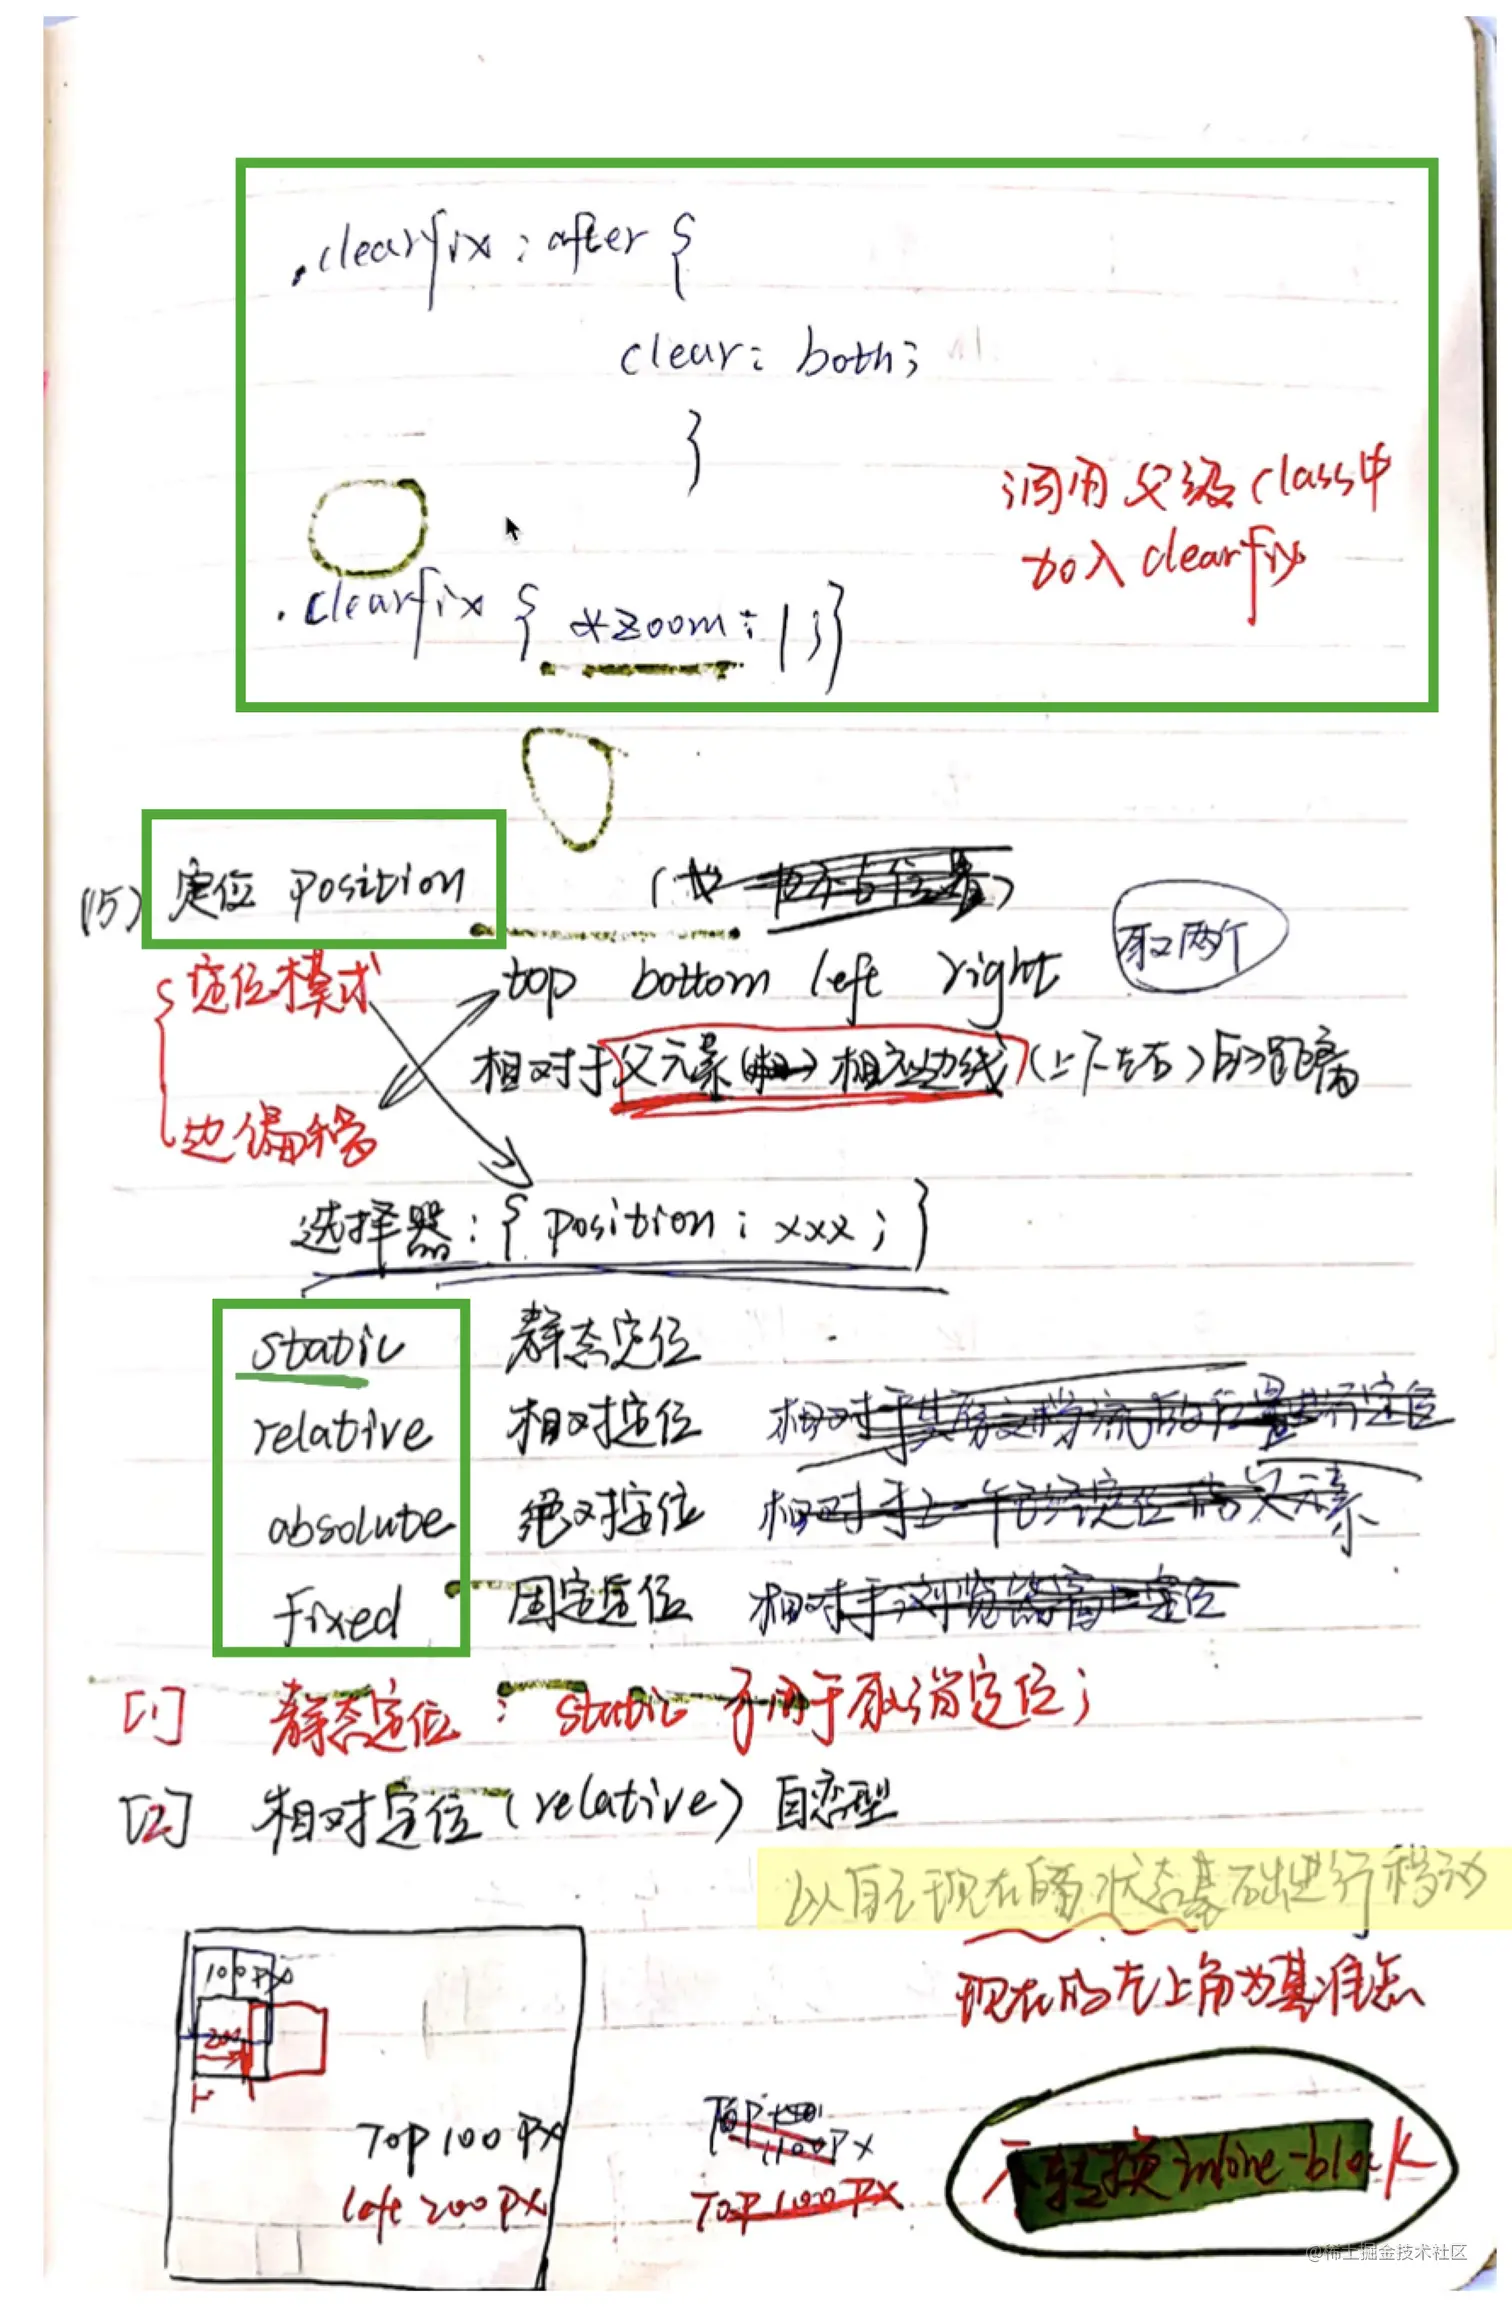 .clearfix:after {
clear: both;
}
调用父级class中
加入clearfix
.clearfix { *zoom: 1;}
(15) 定位 position
取两个
{定位模式
top bottom left right
相对于父元素 相应边线(上下左右)的距离
边偏移
选择器:{position: xxx;}
static 静态定位
relative 相对定位 相对于其原文档流的位置进行定位
absolute 绝对定位 相对于上一个已经定位的父元素
fixed 固定定位 相对于浏览器窗口定位
[1] 静态定位: static 可用于取消定位;
[2] 相对定位(relative) 自恋型
以自己现在的状态基础进行移动
现在的左上角为基准点
100PX
200
Top 100 PX
left 200 PX
Top
100PX
Top 100PX
不转换inline-block
@稀土掘金技术社区